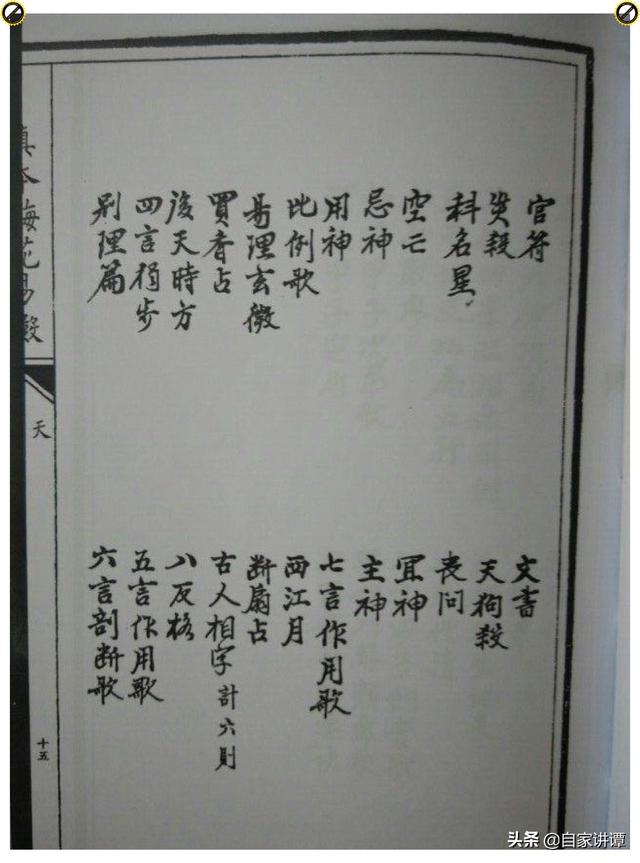 官符
文書
災殺
天狗殺
科名星
喪問
空亡
冝神
忌神
主神
用神
七言作用歌
比例歌
西江月
易理玄微
断扇占
買香占
古人相字 計六則
後天時方
八反格
四言獨步
五言作用歌
别理篇
六言剖断歌
梅花易數
天
十五
头条 @自家讲谭